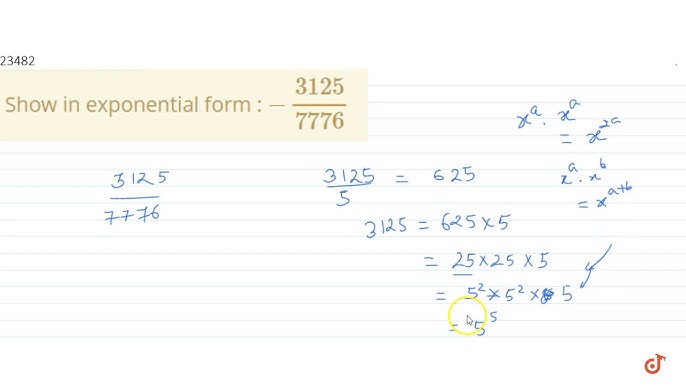 23482
Show in exponential form : $-\frac{3125}{7776}$
$x^a \cdot x^a$
$= x^{2a}$
$x^a \cdot x^b$
$= x^{a+b}$
$\frac{3125}{7776}$
$\frac{3125}{5} = 625$
$3125 = 625 \times 5$
$= 25 \times 25 \times 5$
$= 5^2 \times 5^2 \times 5$
$= 5^5$
d